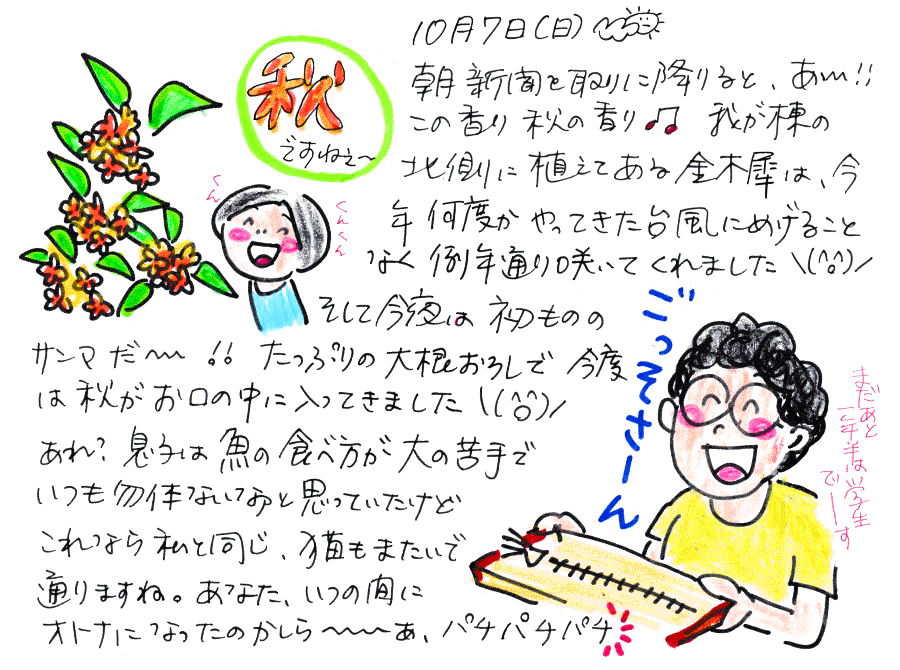 10月7日(日)
秋
ですねぇ〜
朝新聞を取りに降りると、あ〜!!
この香り 秋の香り♫ 我が棟の
北側に植えてある金木犀は、今
年何度かやってきた台風にめげること
なく例年通り咲いてくれました\(^o^)/
くん
くんくん
そして今夜は初ものの
サンマだ〜!! たっぷりの大根おろしで今度
は秋がお口の中に入ってきました\(^o^)/
あれ?息子は魚の食べ方が大の苦手で
いつも勿体ないなぁと思っていたけど
これなら私と同じ、猫もまたいで
通りますね。あなた、いつの間に
オトナになったのかしら〜〜ぁ、パチパチパチ
ごっそさーん
まだあと
一年半は学生
でーす